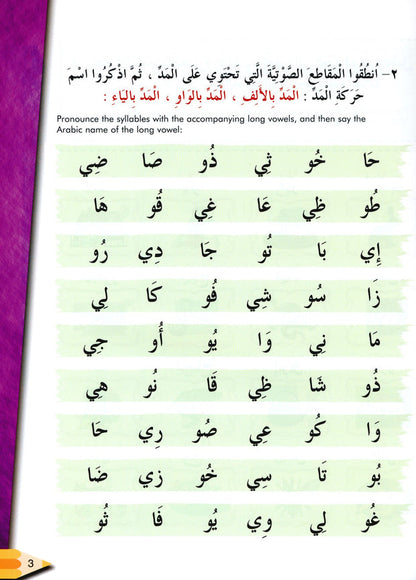 ٢- اُنطُقُوا الْمَقَاطِعَ الصَّوْتِيَّةَ الَّتِي تَحْتَوِي عَلَى الْمَدِّ ، ثُمَّ اذْكُرُوا اسْمَ
حَرَكَةِ الْمَدِّ : الْمَدِّ بِالأَلِفِ ، الْمَدِّ بِالوَاوِ ، الْمَدِّ بِاليَاءِ :
Pronounce the syllables with the accompanying long vowels, and then say the
Arabic name of the long vowel:
حَا خُو ثِي ذُو صَا ضِي
طُو ظِي عَا غِي قُو هَا
إِي بَا تُو جَا دِي رُو
زَا سُو شِي فُو كَا لِي
مَا نِي وَا يُو أُو جِي
ذُو شَا ظِي قَا نُو هِي
وَا كُو عِي صُو رِي حَا
بُو تَا سِي خُو زِي ضَا
غُو لِي وِي يُو فَا ثُو
3